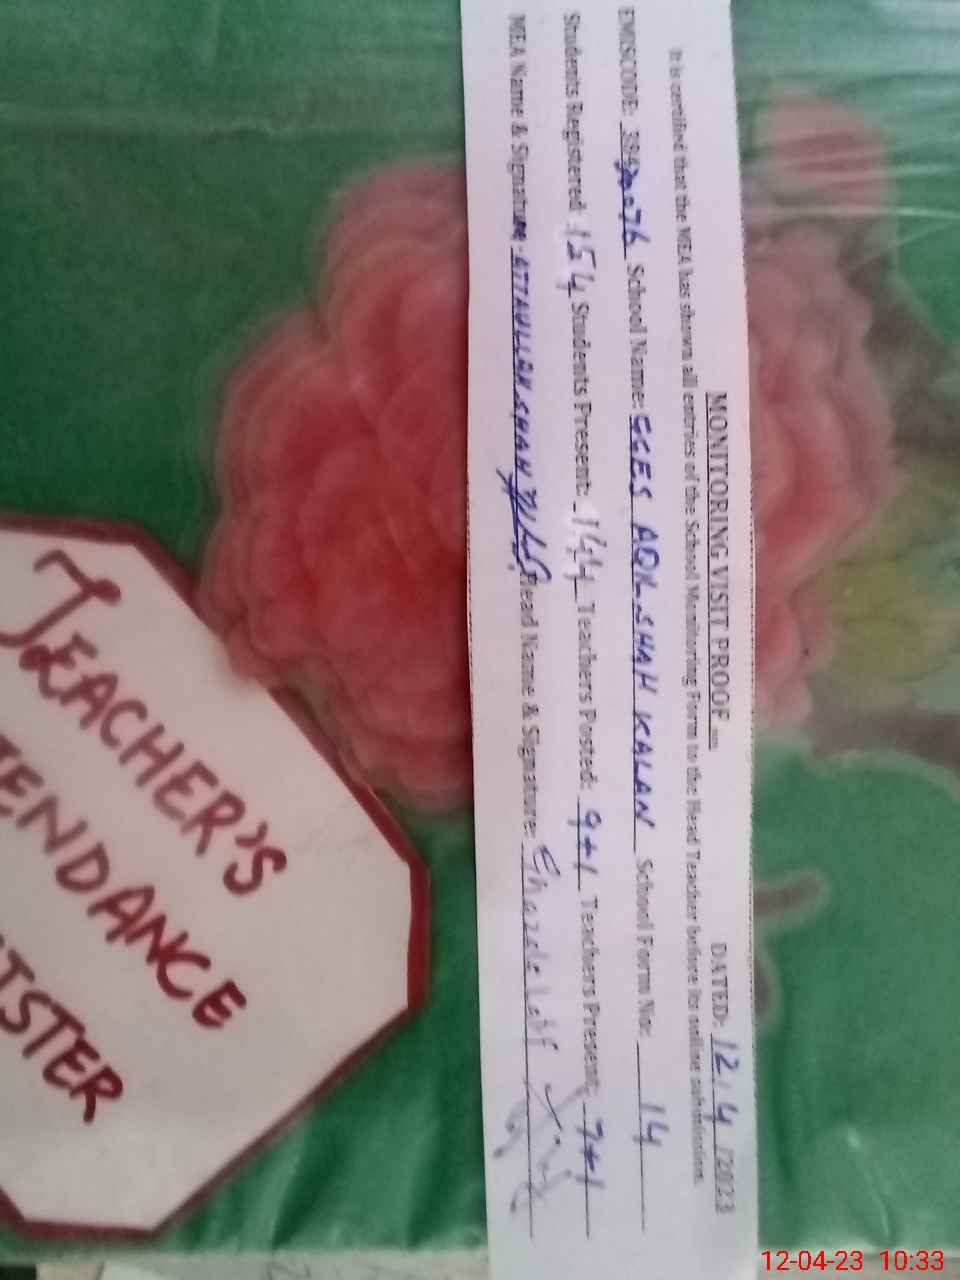 MONITORING VISIT PROOF
DATED: 12.4/2023
It is certified that the MEA has shown all entries of the School Monitoring Form to the Head Teacher before its online submission.
EMISCODE: School Name: GGES AQIL SHAH KALAN School Form No: 14
Students Registered: 154 Students Present: 144 Teachers Posted: 9+1 Teachers Present: 7+1
MEA Name & Signature: ATTAULLAH SHAH Head Name & Signature:
TEACHER'S
TENDANCE
ISTER
12-04-23 10:33